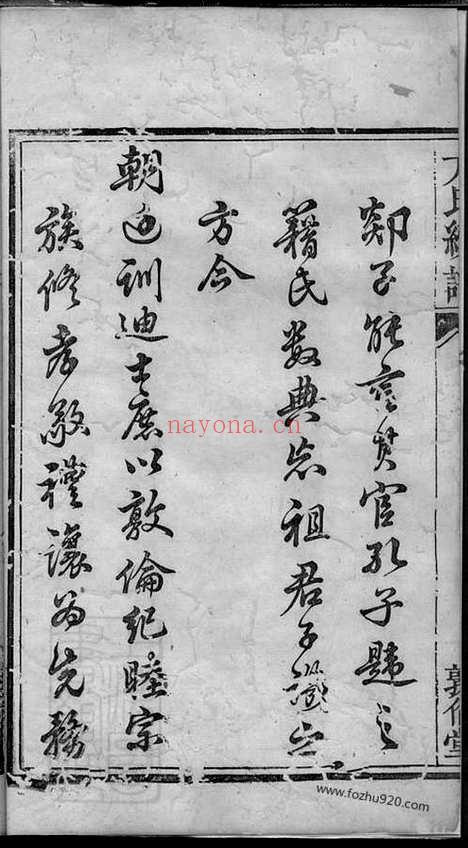 郯子能言其官孔子韙之
籍氏數典忘祖君子譏之
方今
朝廷訓迪士庶以敦倫紀睦宗
族修孝敬禮讓為先務
氏續譜
敦倫堂
nayona.cn
www.fozhu920.com